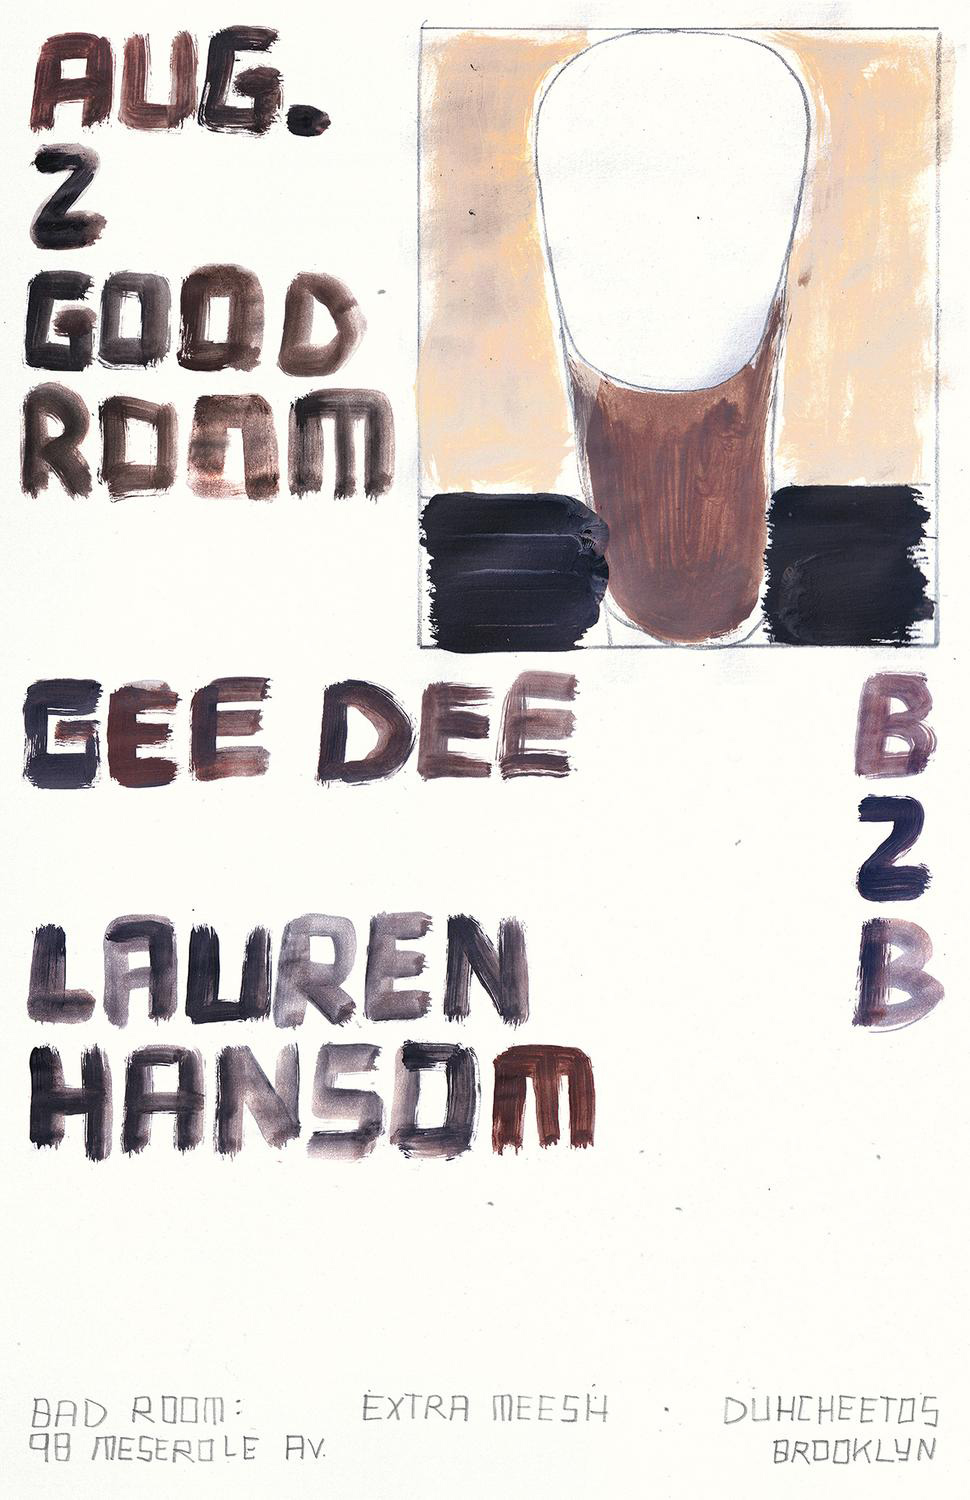 AUG.
2
GOOD
ROOM
GEE DEE
B
2
B
LAUREN
HANSOM
BAD ROOM:
EXTRA MEESH · DUHCHEETOS
98 MESEROLE AV.
BROOKLYN